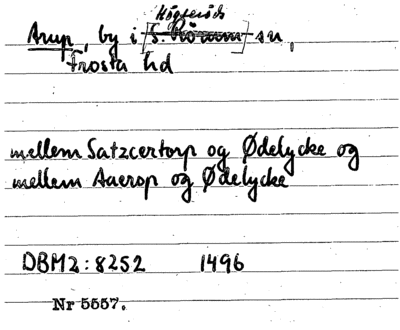 Högseröds
Arup, by i [S. Rörum] sn,
Frosta hd
mellem Satzcertorp og Ødelycke og
mellem Aaerop og Ødelycke
DBM2:8252 1496
Nr 5557.